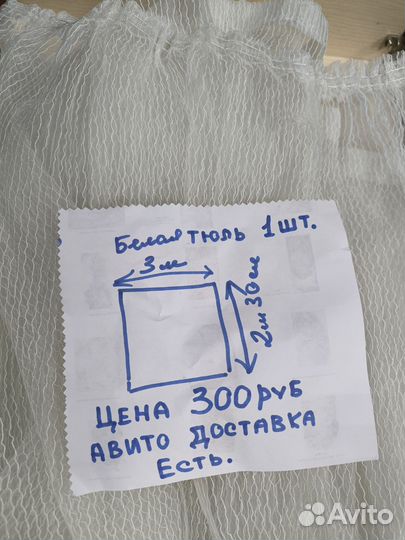 Белая тюль 1шт.
3м
2м 30см
ЦЕНА 300РУБ
АВИТО ДОСТАВКА
ЕСТЬ.
Avito